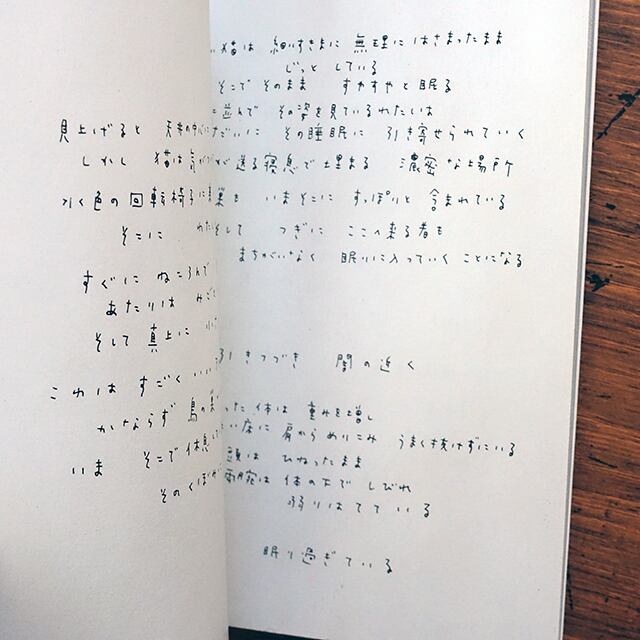 見上げると 天井の中心に
しかし 猫は気が
水色の回転椅子に
そこに わた
すぐに ねころんで
あたりは みごと
そして 真上に
これは すごく いい
かならず 鳥の
いま そこで休息して
そのくぼみ
い猫は 細いすきまに 無理に はさまったまま
じっと している
そこで そのまま すやすやと眠る
に並んで その姿を見ているわたしは
だいに その睡眠に 引き寄せられていく
が送る寝息で埋まる 濃密な場所
も いまそこに すっぽりと 含まれている
そして つぎに ここへ来る者も
まちがいなく 眠りに入っていく ことになる
引きつづき 闇の近く
った体は 重みを増し
い床に 肩からめりこみ うまく抜けずにいる
頭は ひねったまま
両腕は 体の下で しびれ
弱りはてている
眠り過ぎている